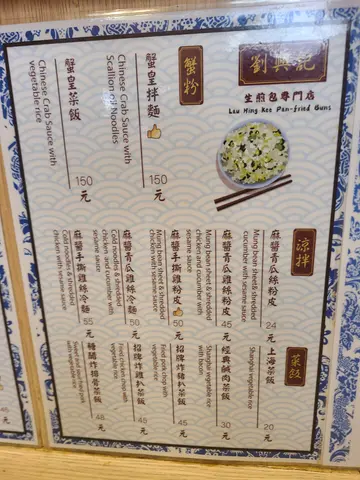 劉興記
生煎包專門店
Lau Hing Kee Pan-Fried Buns
蟹粉
蟹皇拌麵
Chinese Crab Sauce with
Scallion Oil Noodles
150元
蟹皇菜飯
Chinese Crab Sauce with
vegetable rice
150元
涼拌
麻醬青瓜粉皮
Mung bean sheet & shredded
cucumber with sesame sauce
24元
麻醬青瓜雞絲粉皮
Mung bean sheet & shredded
chicken and cucumber with
sesame sauce
45元
麻醬手撕雞粉皮
Mung bean sheet & shredded
chicken with sesame sauce
50元
麻醬青瓜雞絲冷麵
Cold noodles & shredded
chicken and cucumber with
sesame sauce
50元
麻醬手撕雞冷麵
Cold noodles & shredded
chicken with sesame sauce
55元
菜飯
上海菜飯
Shanghai vegetable rice
20元
經典鹹肉菜飯
30元
招牌炸豬扒菜飯
Fried pork chop with
vegetable rice
45元
招牌炸雞扒菜飯
Fried chicken chop with
vegetable rice
45元
糖醋炸排骨菜飯
48元